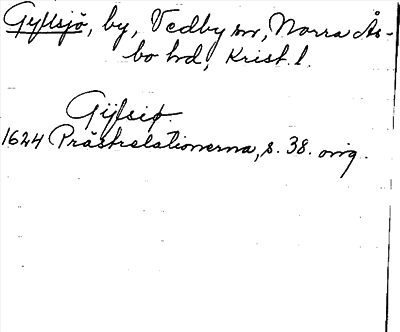 Gyllsjö, by, Vedby sn, Norra Ås-
bo hd, Krist. l.
Gijlsiø.
1624 Prästrelationerna, s. 38. orig.